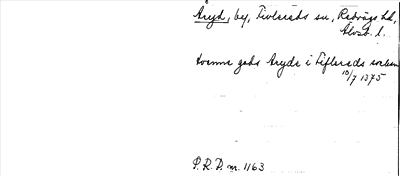 Aryd, by, Tivlereds sn, Redvägs hd,
Älvsb. l.
gods Aryde i Tiflereds socken
10/7 1375
P. R. P. nr. 1163